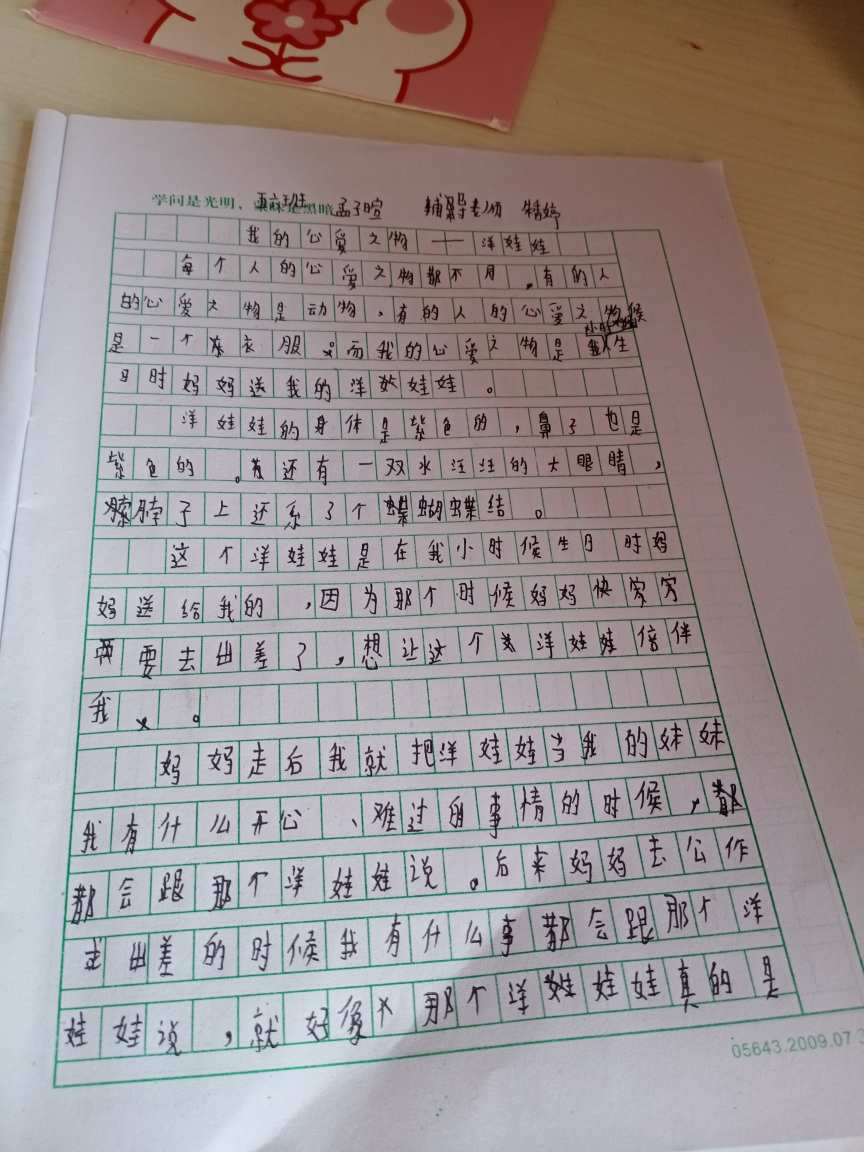 学问是光明，是黑暗 五六班 孟子暄 辅导老师
我的心爱之物——洋娃娃
每个人的心爱之物都不月。有的人
的心爱之物是动物，有的人的心爱之物
是一个衣服。而我的心爱之物是我小时候生
日时妈妈送我的洋娃娃。
洋娃娃的身体是紫色的，鼻子也是
紫色的。还有一双水汪汪的大眼睛，
脖子上还系了个蝴蝶结。
这个洋娃娃是在我小时候生日时妈
妈送给我的，因为那个时候妈妈快
要去出差了，想让这个洋娃娃倍伴
我。
妈妈走后我就把洋娃娃当我的妹妹
我有什么开公、难过的事情的时候，都
都会跟那个洋娃娃说。后来妈妈去公作
或出差的时候我有什么事都会跟那个洋
娃娃说，就好像那个洋娃娃真的是
05643.2009.07